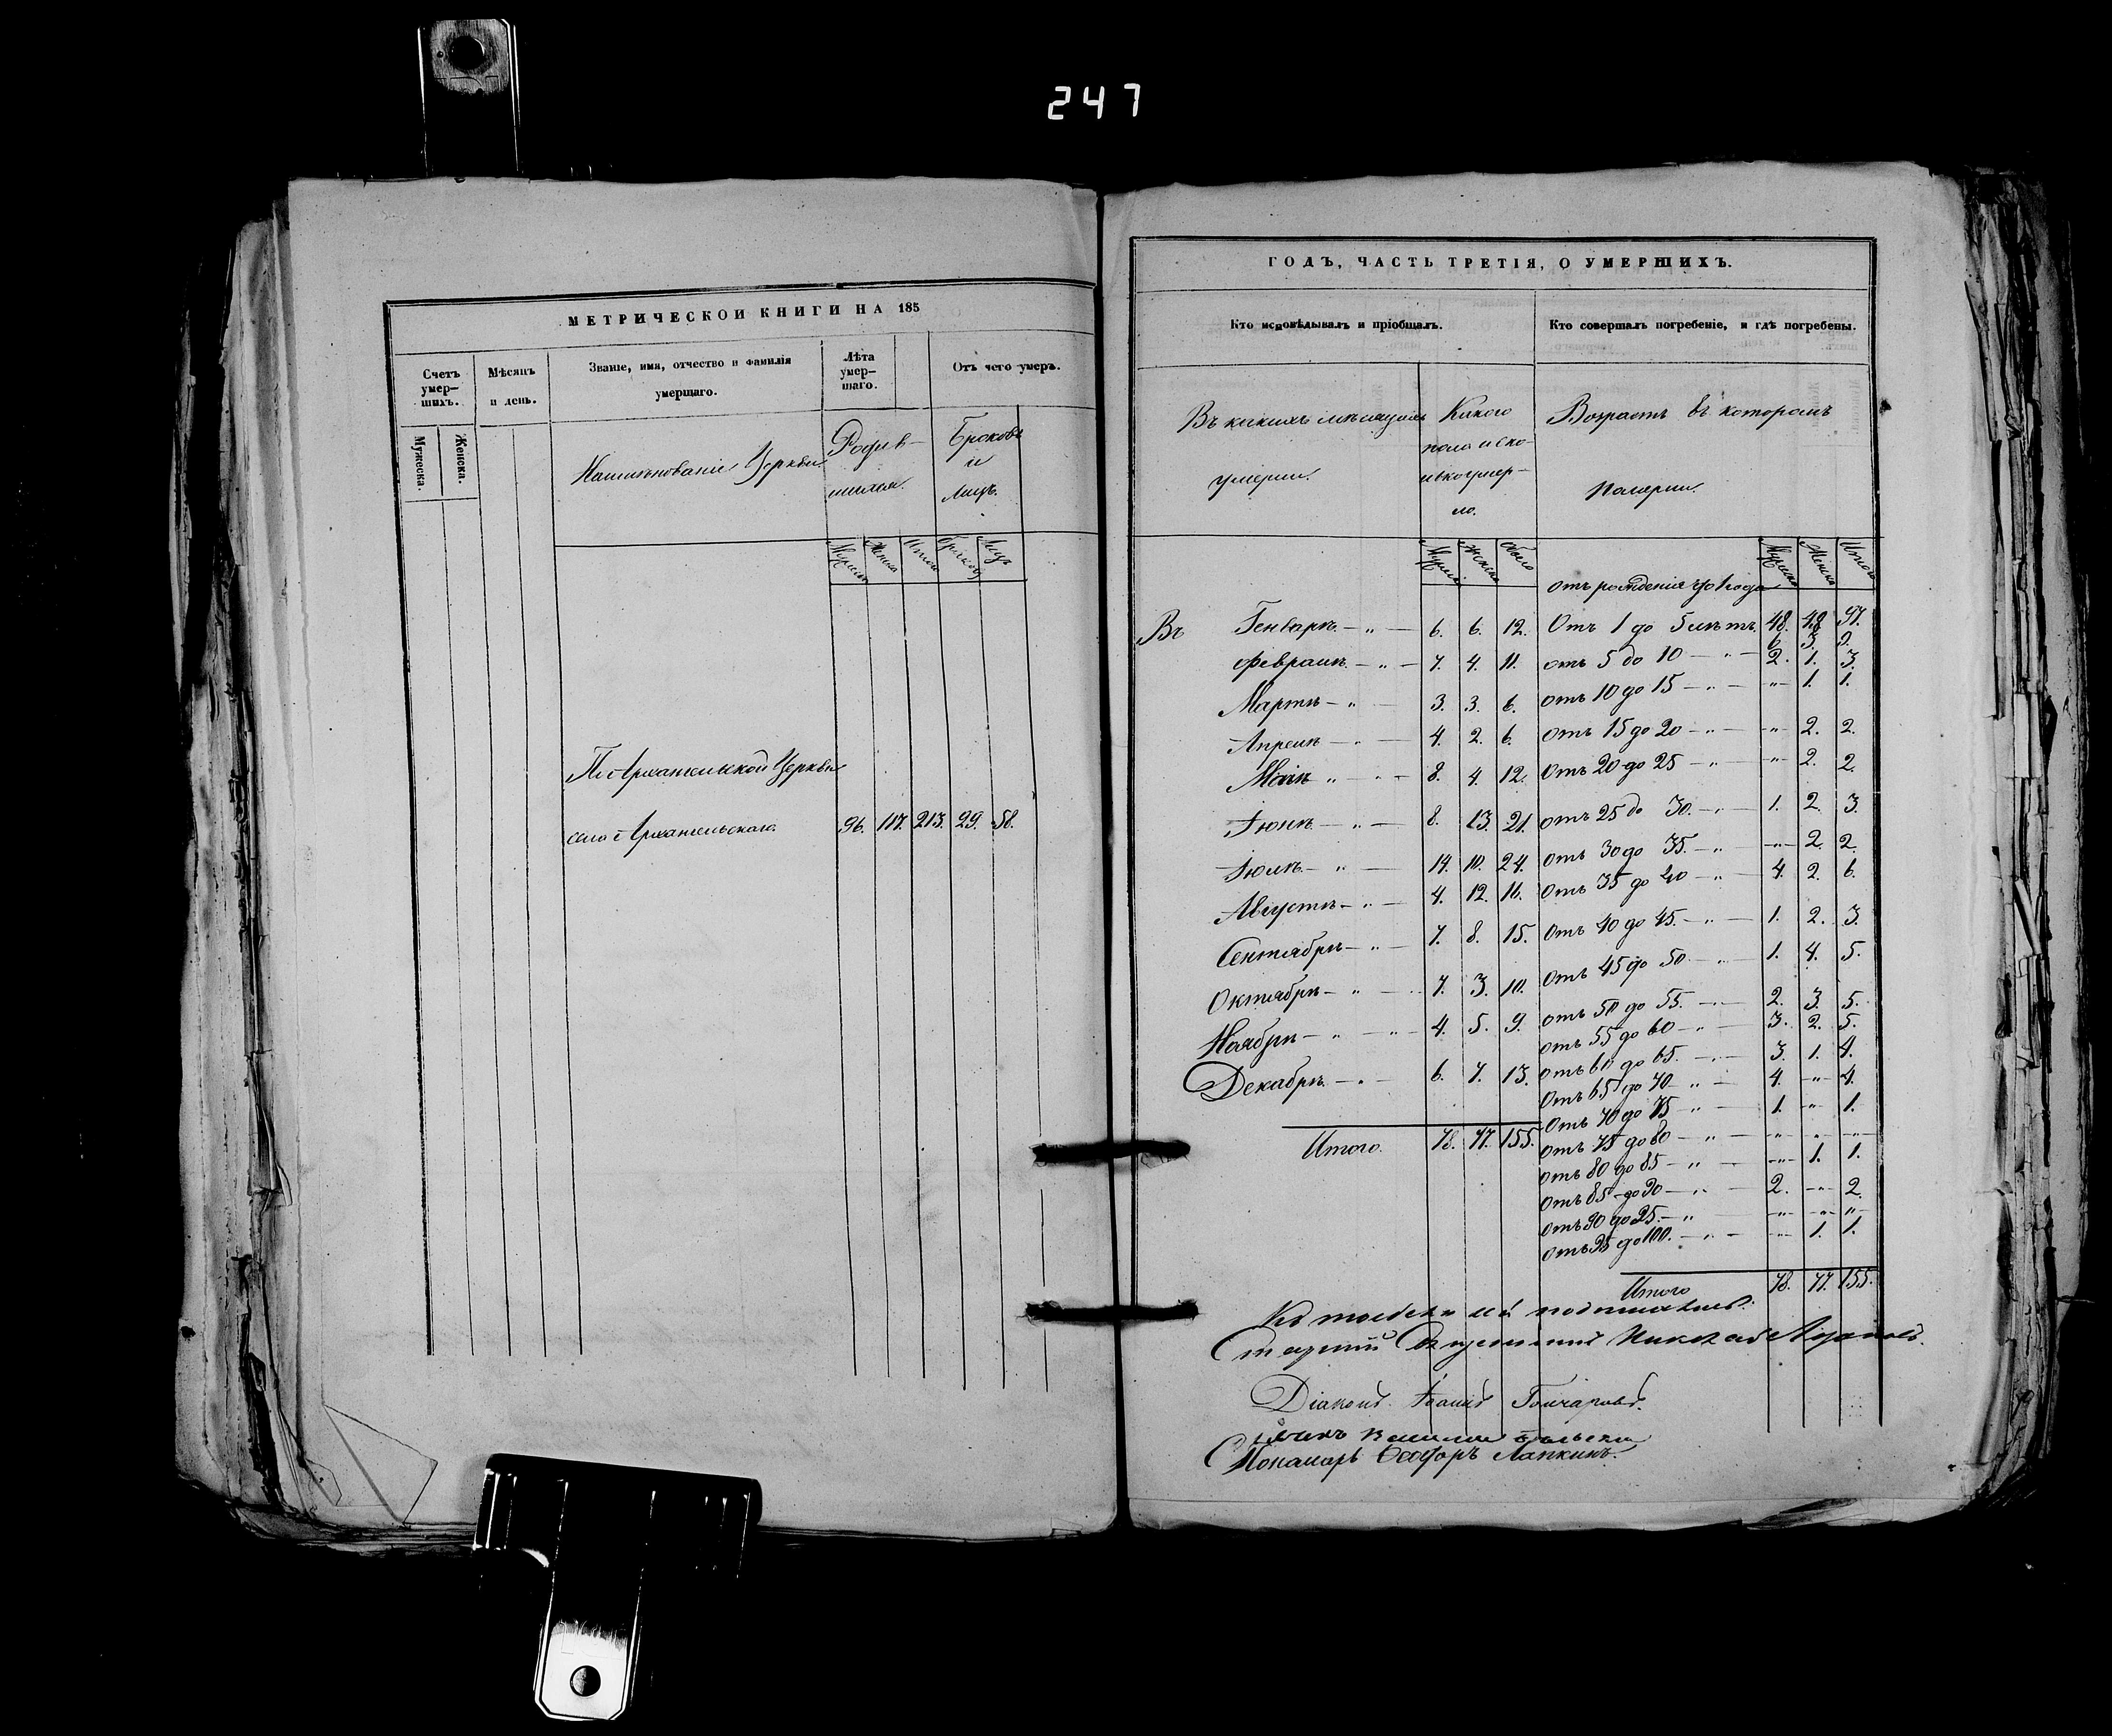 247
МЕТРИЧЕСКОЙ КНИГИ НА 185
Счетъ умер-шихъ.
Мѣсяцъ и день.
Званіе, имя, отчество и фамилія
умершаго.
Лѣта умер-шаго.
Отъ чего умеръ.
Мужеска.
Женска.
Наименованіе Церкви
Родив-
шихся.
Браковъ
и
лицъ.
Мужеска Женска Итого Браковъ Лицъ
По Архангельской Церкви
села Архангельскаго. 96. 117. 213. 29. 58.
ГОДЪ, ЧАСТЬ ТРЕТІЯ, О УМЕРШИХЪ.
Кто исповѣдывалъ и пріобщалъ.
Кто совершалъ погребеніе, и гдѣ погребены.
Въ какихъ мѣсяцахъ
умерли.
Какого
пола и ско-
лько умер-
ло.
Возрастъ въ которомъ
Померли.
Мужеска Женска Обоего
Мужеска Женска Итого
Въ Генварѣ 6. 6. 12.
Февралѣ 7. 4. 11.
Мартѣ 3. 3. 6.
Апрелѣ 4. 2. 6.
Маіѣ 8. 4. 12.
Іюнѣ 8. 13. 21.
Іюлѣ 14. 10. 24.
Августѣ 4. 12. 16.
Сентябрѣ 7. 8. 15.
Октябрѣ 7. 3. 10.
Ноябрѣ 4. 5. 9.
Декабрѣ 6. 7. 13.
Итого. 78. 77. 155.
отъ рожденія до 1 года
48. 97.
Отъ 1 до 5 лѣтъ. 6. 3. 9.
отъ 5 до 10 2. 1. 3.
отъ 10 до 15 „ 1. 1.
отъ 15 до 20 „ 2. 2.
Отъ 20 до 25 „ 2. 2.
отъ 25 до 30. 1. 2. 3.
отъ 30 до 35. „ 2. 2.
отъ 35 до 40 4. 2. 6.
Отъ 40 до 45. 1. 2. 3.
Отъ 45 до 50 1. 4. 5.
отъ 50 до 55. 2. 3. 5.
отъ 55 до 60 3. 2. 5.
отъ 60 до 65. 3. 1. 4.
Отъ 65 до 70 4. „ 4.
Отъ 70 до 75 1. „ 1.
отъ 75 до 80 „ „ „
отъ 80 до 85 „ 1. 1.
отъ 85 до 90 2. „ 2.
отъ 90 до 95. „ „ „
отъ 95 до 100. „ 1. 1.
Итого 78. 77. 155.
Старшій Священникъ Николай
Діаконъ Іоаннъ Гончаровъ.
Дьячекъ
Пономарь Ѳеодоръ Лапкинъ.